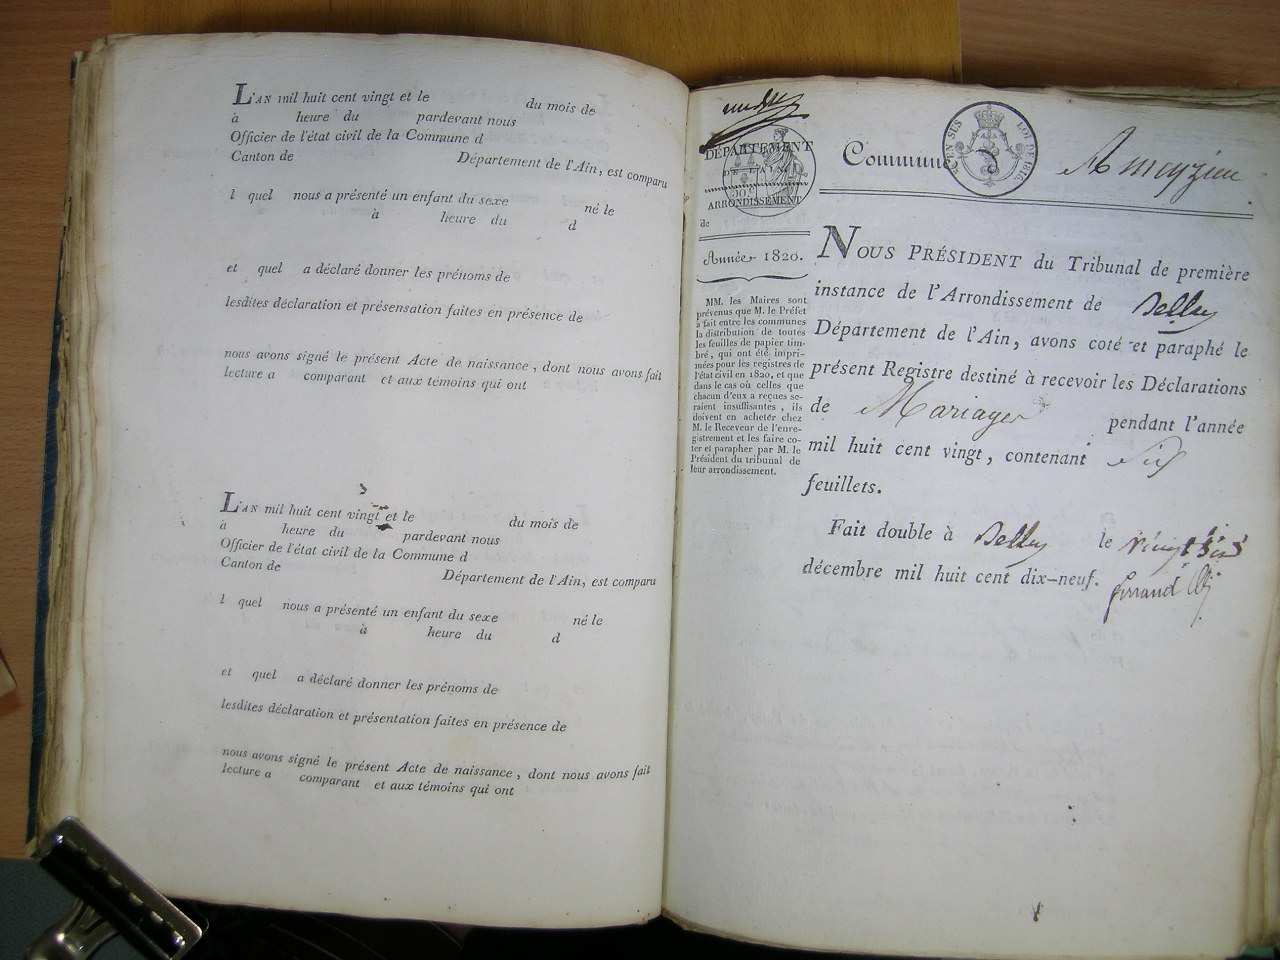 L'AN mil huit cent vingt et le du mois de
à heure du pardevant nous
Officier de l'état civil de la Commune d
Canton de Département de l'Ain, est comparu
l quel nous a présenté un enfant du sexe né le
à heure du d
et quel a déclaré donner les prénoms de
lesdites déclaration et présensation faites en présence de
nous avons signé le présent Acte de naissance, dont nous avons fait
lecture a comparant et aux témoins qui ont
L'AN mil huit cent vingt et le du mois de
à heure du pardevant nous
Officier de l'état civil de la Commune d
Canton de Département de l'Ain, est comparu
l quel nous a présenté un enfant du sexe né le
à heure du d
et quel a déclaré donner les prénoms de
lesdites déclaration et présentation faites en présence de
nous avons signé le présent Acte de naissance, dont nous avons fait
lecture a comparant et aux témoins qui ont
DÉPARTEMENT
DE L'AIN
ARRONDISSEMENT
de
Année 1820.
MM. les Maires sont
prévenus que M. le Préfet
a fait entre les communes
la distribution de toutes
les feuilles de papier tim-
bré, qui ont été impri-
mées pour les registres de
l'état civil en 1820, et que
dans le cas où celles que
chacun d'eux a reçues se-
raient insuffisantes, ils
doivent en acheter chez
M. le Receveur de l'enre-
gistrement et les faire co-
ter et parapher par M. le
Président du tribunal de
leur arrondissement.
Commune Ameyzieu
LOI DE 1816
NOUS PRÉSIDENT du Tribunal de première
instance de l'Arrondissement de Belley
Département de l'Ain, avons coté et paraphé le
présent Registre destiné à recevoir les Déclarations
de Mariages pendant l'année
mil huit cent vingt, contenant six
feuillets.
Fait double à Belley le vingt six
décembre mil huit cent dix-neuf.